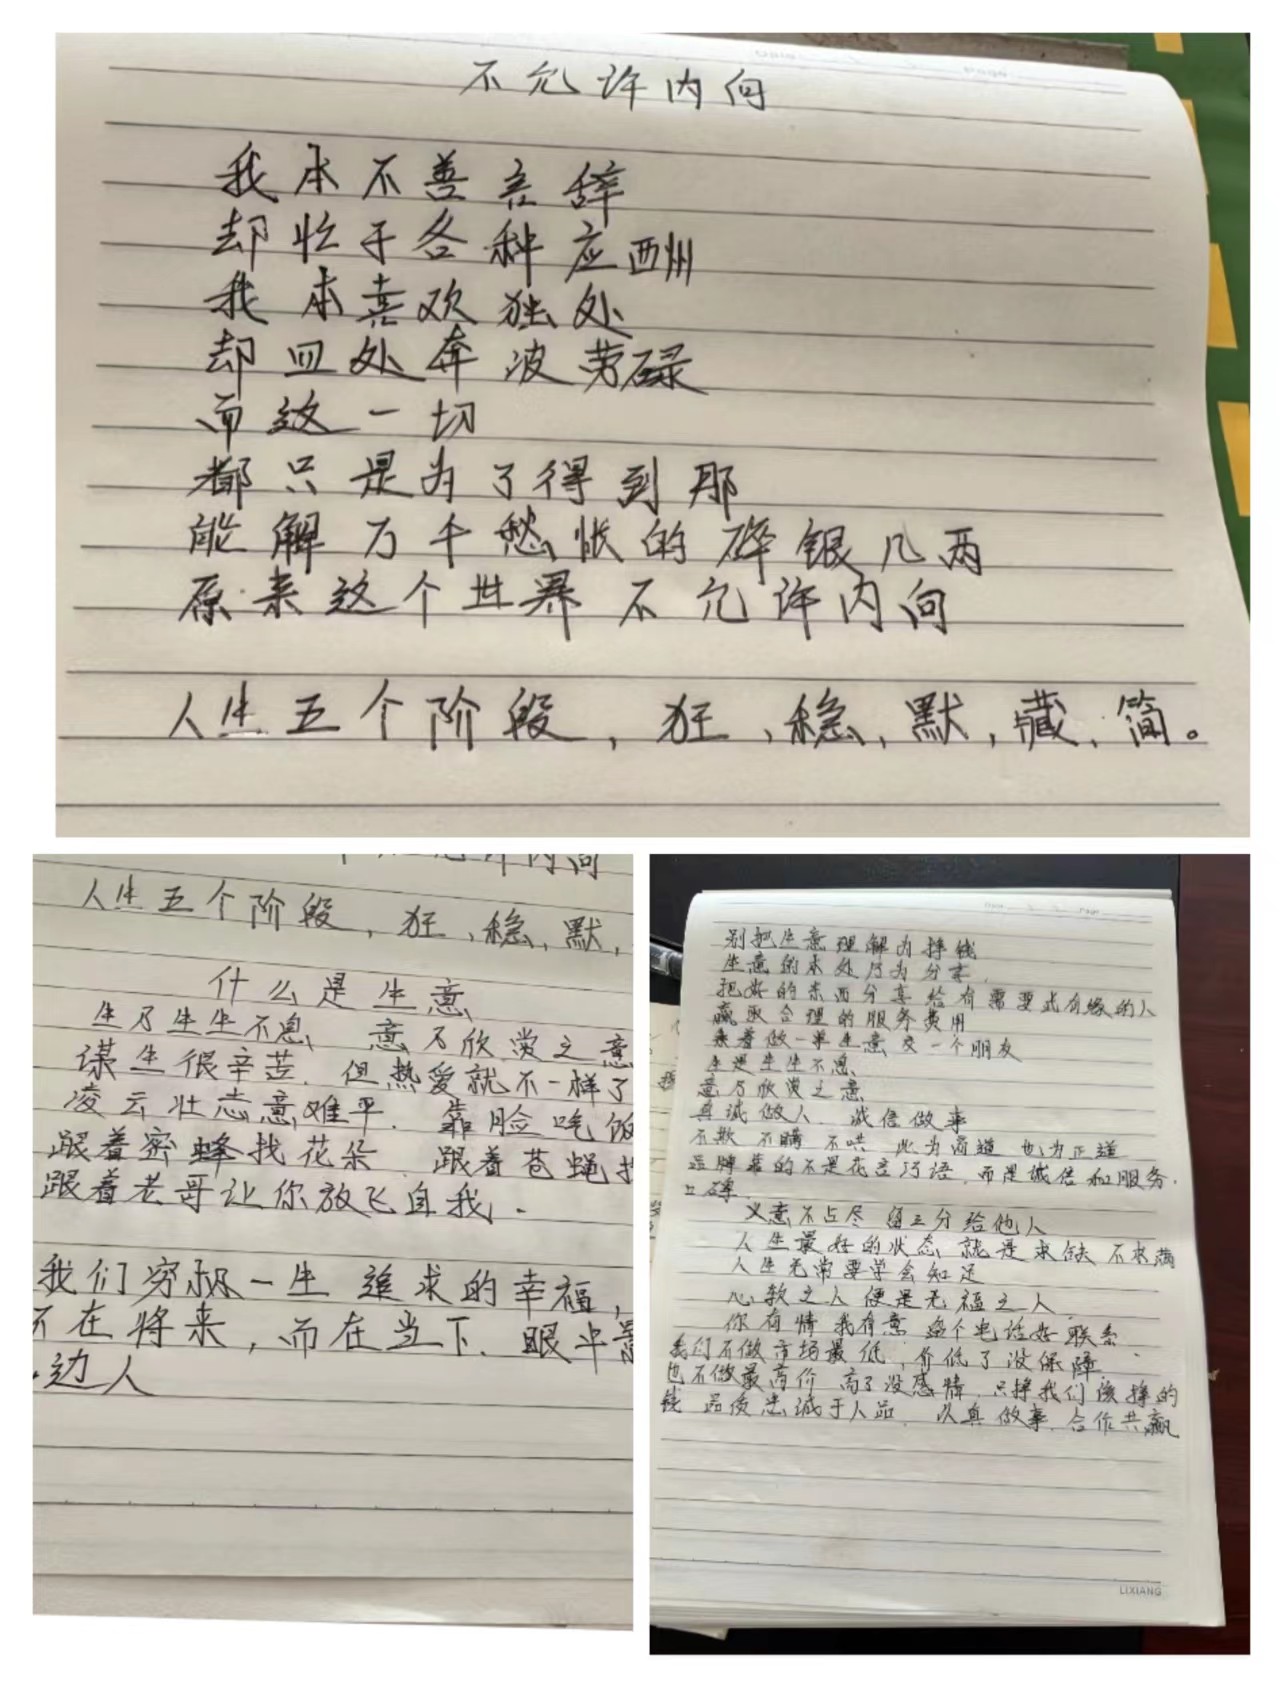 不允许内向
我本不善言辞
却忙于各种应酬
我本喜欢独处
却四处奔波劳碌
而这一切
都只是为了得到那
能解万千愁怅的碎银几两
原来这个世界不允许内向
人生五个阶段,狂,稳,默,藏,简。
许内向
人生五个阶段,狂,稳,默,
什么是生意
生乃生生不息 意乃欣赏之意
谋生很辛苦.但热爱就不一样了
凌云壮志意难平.靠脸吃饭
跟着密蜂找花朵 跟着苍蝇
跟着老哥让你放飞自我.
我们穷极一生 追求的幸福,
不在将来,而在当下.眼中
边人
别把生意理解为挣钱
生意的本处乃为分享.
把好的东西分享给有需要或有缘的人
赢取合理的服务费用
来着做一单生意 交一个朋友
生是生生不息
意乃欣赏之意
真诚做人.诚信做事
不欺 不瞒 不哄 此为商道 也为正道
品牌靠的不是花言巧语.而是诚信和服务.
口碑.
义意不占尽 留三分给他人
人生最好的状态 就是求缺 不求满
人生无常要学会知足
心软之人 便是无福之人.
你有情 我有意 逢个电话好联系
我们不做市场最低,价低了没保障
也不做最高价 高了没感情.只挣我们该挣的
钱 品质忠诚于人品.以真做事.合作共赢
LIXIANG